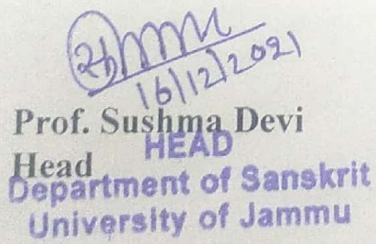 16/12/2021
Prof. Sushma Devi
Head
HEAD
Department of Sanskrit
University of Jammu